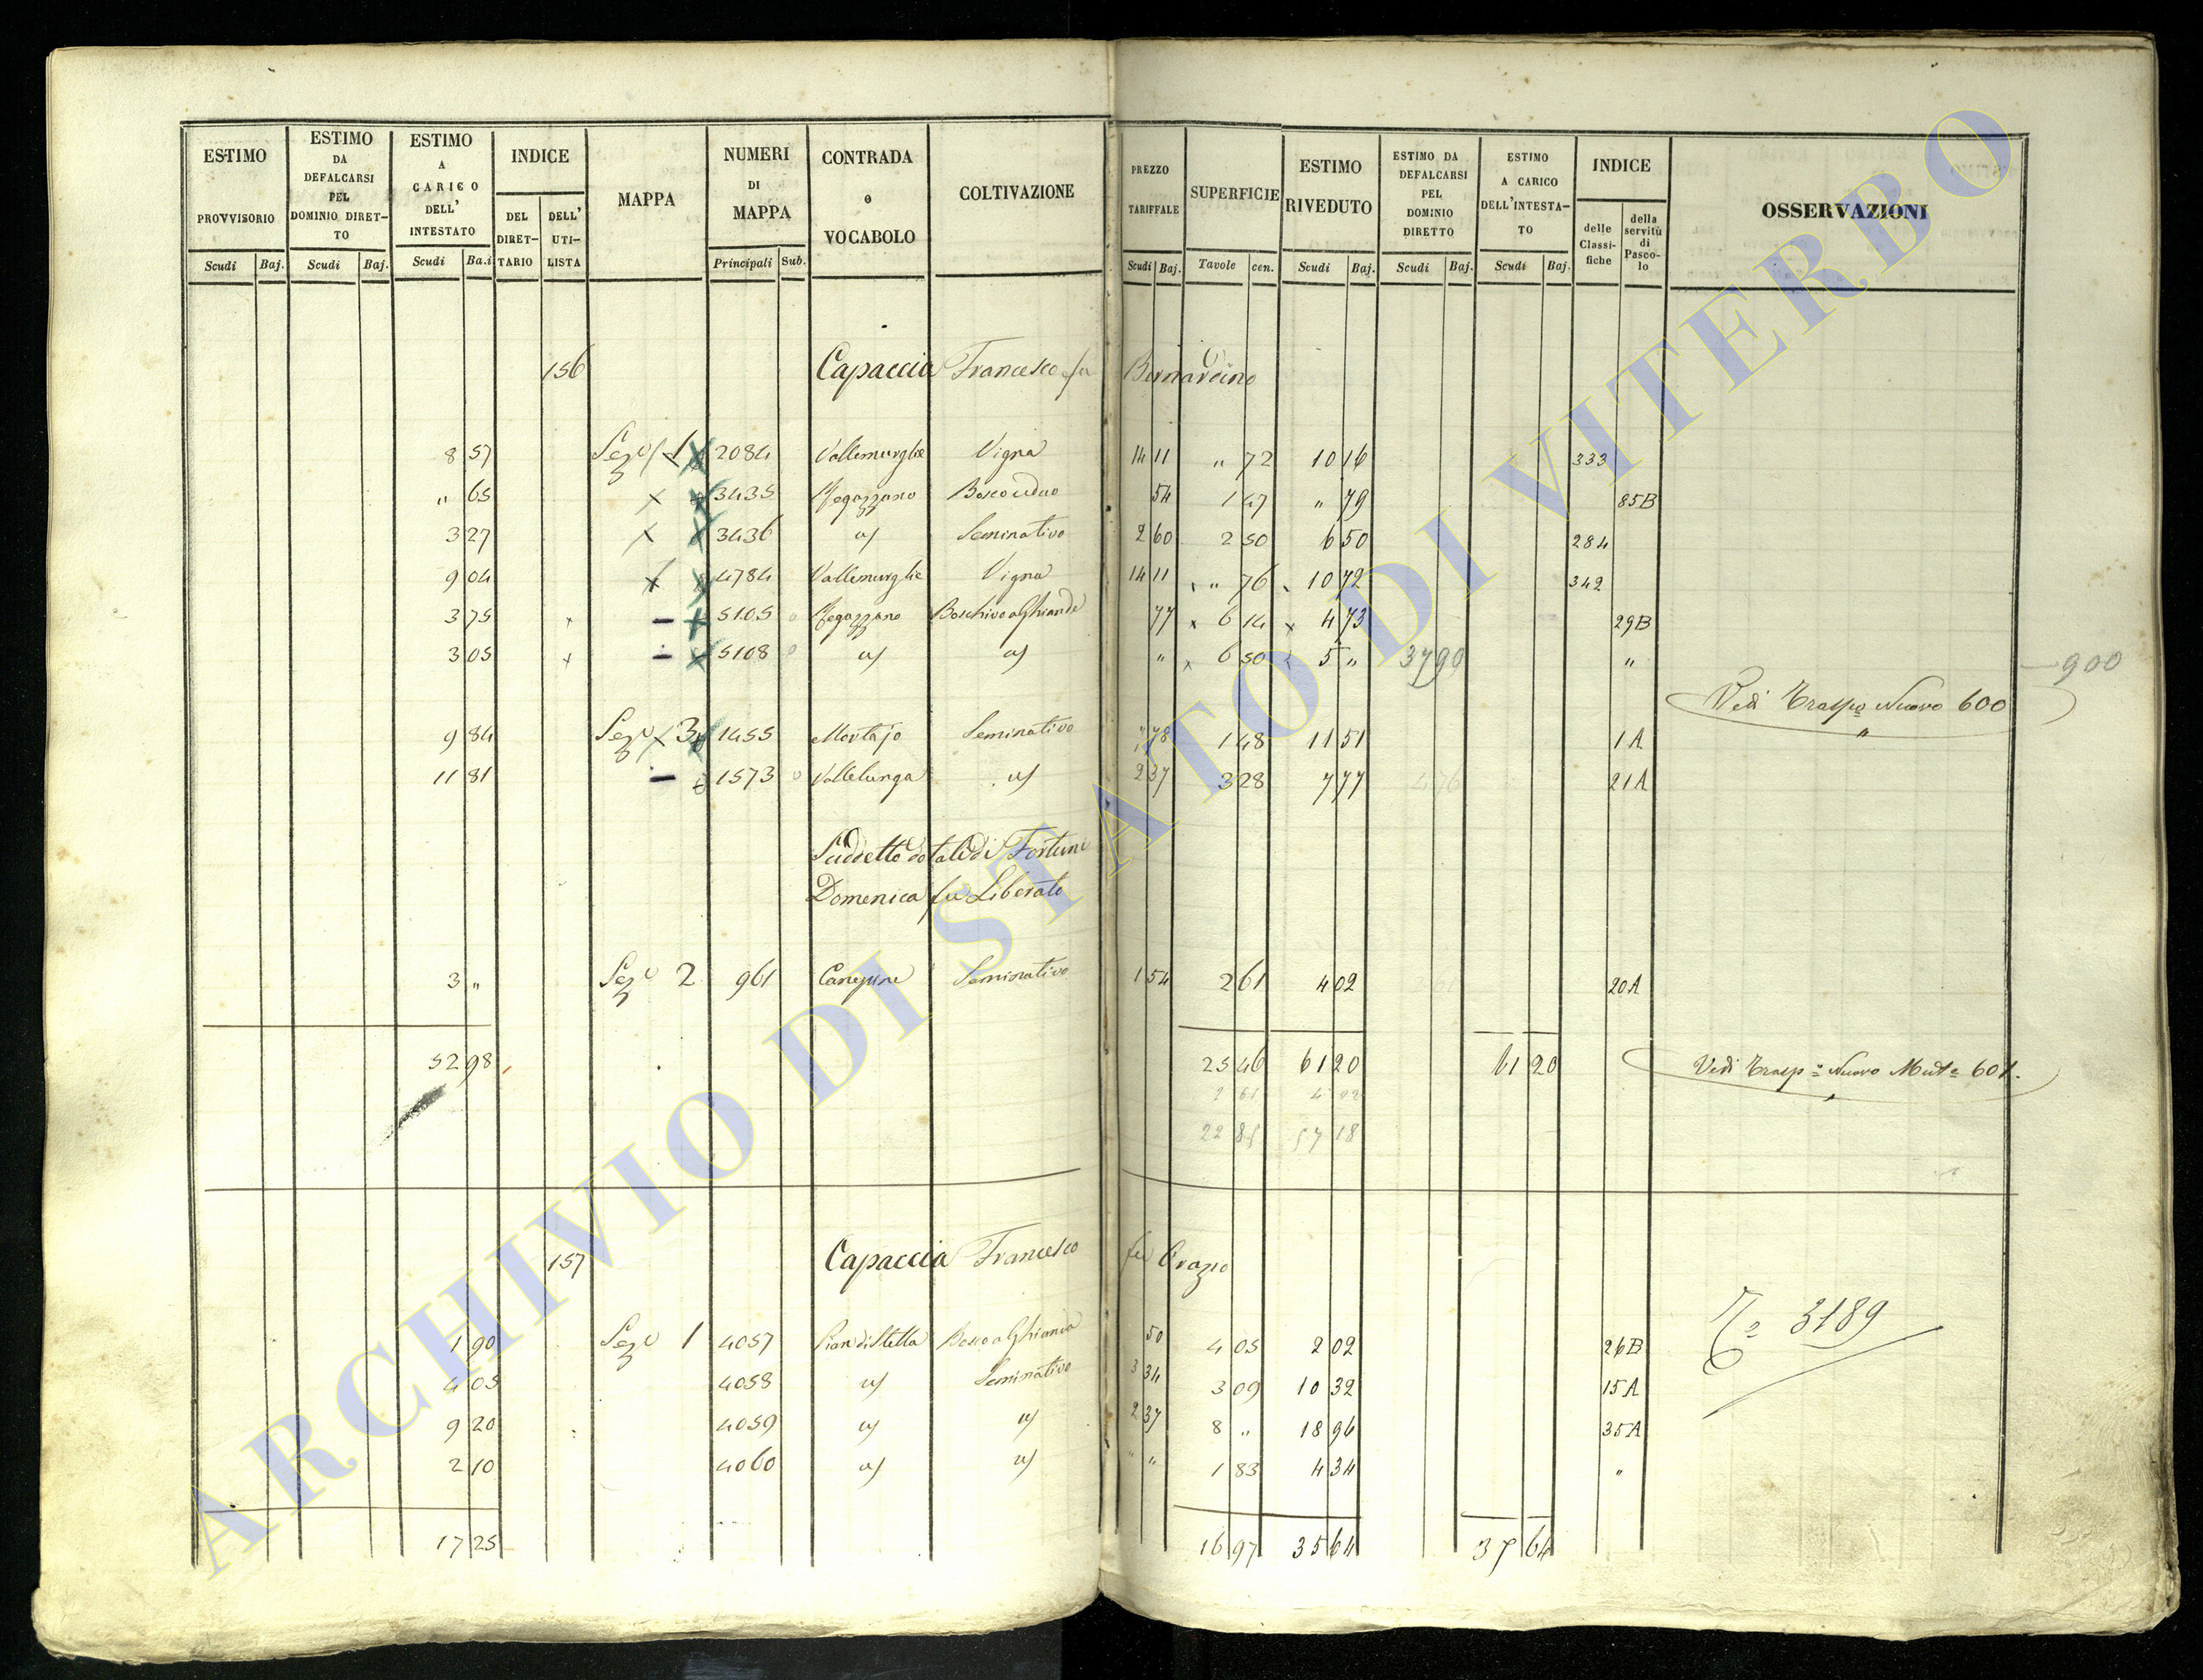 ESTIMO PROVVISORIO | ESTIMO DA DEFALCARSI PEL DOMINIO DIRET-TO | ESTIMO A CARICO DELL' INTESTATO | INDICE | MAPPA | NUMERI DI MAPPA | CONTRADA o VOCABOLO | COLTIVAZIONE | PREZZO TARIFFALE | SUPERFICIE | ESTIMO RIVEDUTO | ESTIMO DA DEFALCARSI PEL DOMINIO DIRETTO | ESTIMO A CARICO DELL'INTESTA-TO | INDICE | OSSERVAZIONI
DEL DIRET-TARIO | DELL' UTI-LISTA | delle Classi-fiche | della servitù di Pasco-lo
Scudi | Baj. | Scudi | Baj. | Scudi | Ba.i | Principali | Sub. | Scudi | Baj. | Tavole | cen. | Scudi | Baj. | Scudi | Baj. | Scudi | Baj.
156 Capaccia Francesco fu Bernardino
8 57 Sez.e 1 2084 Vallemurghe Vigna 14 11 " 72 10 16 333
" 65 3435 Rogazzano Bosco ceduo 54 1 47 " 79 85B
3 27 3436 id Seminativo 2 60 2 50 6 50 284
9 04 4784 Vallemurghe Vigna 14 11 " 76 10 72 342
3 75 5105 Rogazzano Boschivo a Ghiande 77 6 14 4 73 29B
3 05 5108 id id " 6 50 5 " 37 90 " 900
Vedi Traspo Nuovo 600
9 84 Sez.e 3 1455 Montajo Seminativo 1 48 11 51 1A
11 81 1573 Vallelunga id 2 37 3 28 7 77 21A
Suddetto dotali di Fortuni
Domenica fu Liberato
3 " Sez.e 2 961 Canepine Seminativo 1 54 2 61 4 02 20A
52 98 25 46 61 20 61 20 Vedi Trasp.o Nuovo Mut.e 601.
2 61 4 02
22 85 57 18
157 Capaccia Francesco fu Orazio
1 90 Sez.e 1 4057 Pian di Stella Bosco a Ghianda 50 4 05 2 02 26B
3189
4 05 4058 id Seminativo 3 34 3 09 10 32 15A
9 20 4059 id id 2 37 8 " 18 96 35A
2 10 4060 id id " " 1 83 4 34 "
17 25 16 97 35 64 37 64
ARCHIVIO DI STATO DI VITERBO